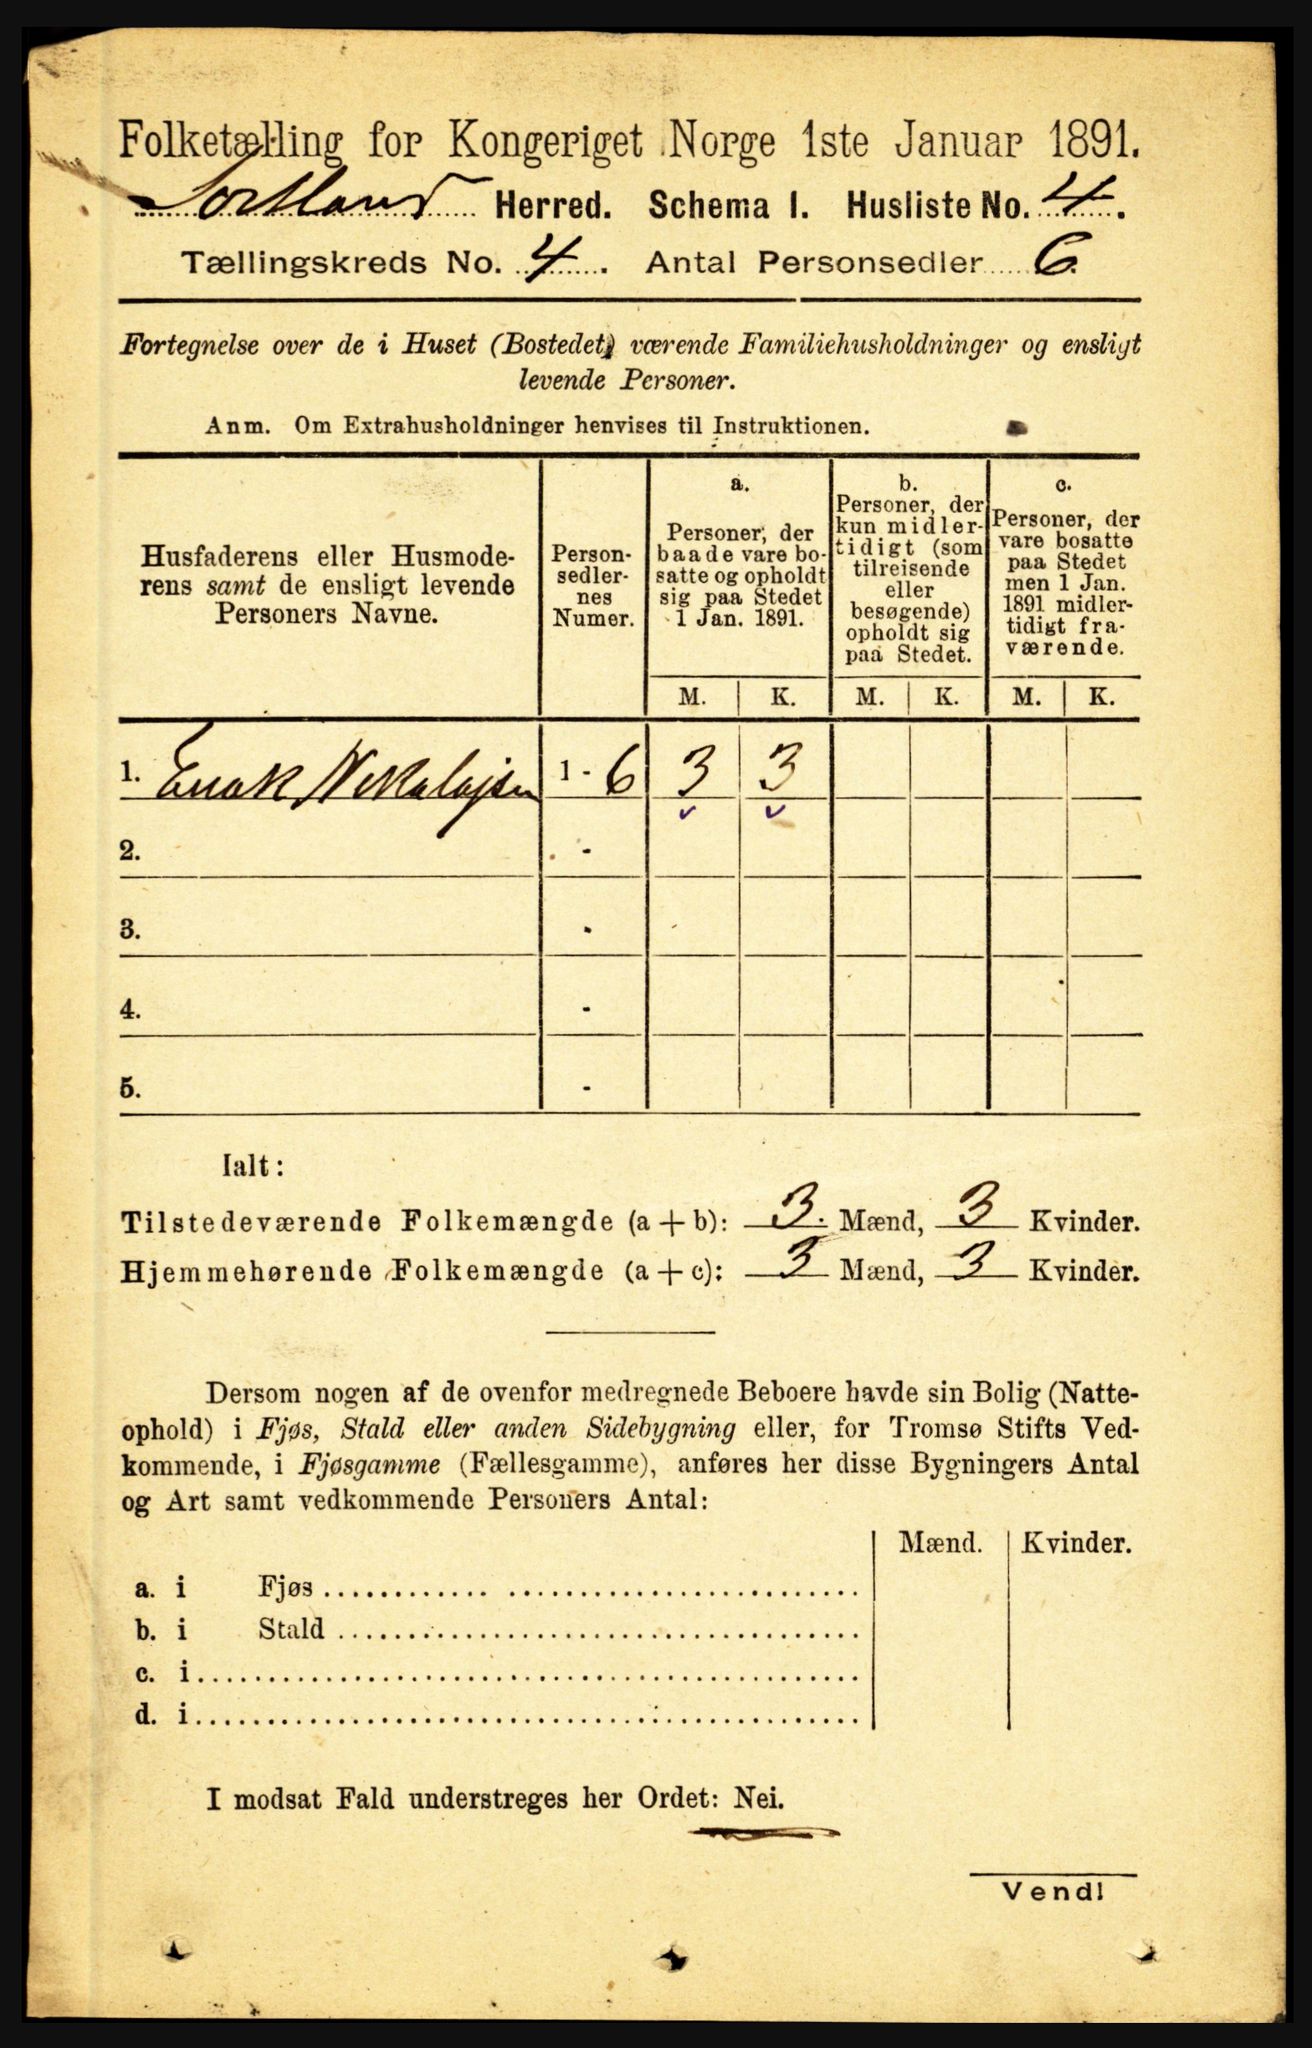 Folketælling for Kongeriget Norge 1ste Januar 1891.
Sortland Herred. Schema I. Husliste No. 4.
Tællingskreds No. 4. Antal Personsedler 6.
Fortegnelse over de i Huset (Bostedet) værende Familiehusholdninger og ensligt
levende Personer.
Anm. Om Extrahusholdninger henvises til Instruktionen.
Husfaderens eller Husmode-
rens samt de ensligt levende
Personers Navne.
Person-
sedler-
nes
Numer.
a.
Personer, der
baade vare bo-
satte og opholdt
sig paa Stedet
1 Jan. 1891.
b.
Personer, der
kun midler-
tidigt (som
tilreisende
eller
besøgende)
opholdt sig
paa Stedet.
c.
Personer, der
vare bosatte
paa Stedet
men 1 Jan.
1891 midler-
tidigt fra-
værende.
M. K. M. K. M. K.
1. Enok Nikolajsen 1 - 6 3 3
2. -
3. -
4. -
5. -
Ialt:
Tilstedeværende Folkemængde (a + b): 3. Mænd, 3 Kvinder.
Hjemmehørende Folkemængde (a + c): 3 Mænd, 3 Kvinder.
Dersom nogen af de ovenfor medregnede Beboere havde sin Bolig (Natte-
ophold) i Fjøs, Stald eller anden Sidebygning eller, for Tromsø Stifts Ved-
kommende, i Fjøsgamme (Fællesgamme), anføres her disse Bygningers Antal
og Art samt vedkommende Personers Antal:
Mænd. Kvinder.
a. i Fjøs
b. i Stald
c. i
d. i
I modsat Fald understreges her Ordet: Nei.
Vend!